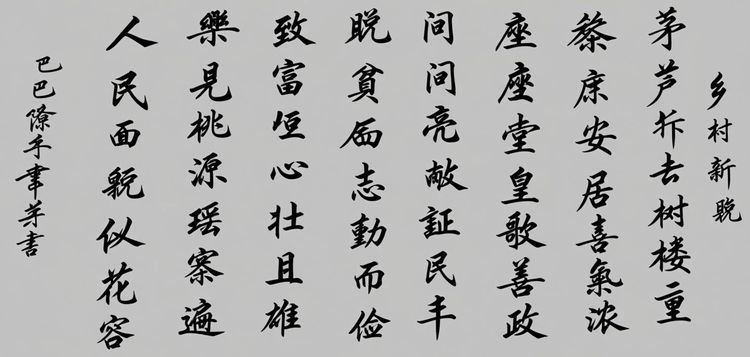 乡村新貌
茅芦拆去树楼重
黎庶安居喜氣浓
座座堂皇歌善政
问问亮敞証民丰
脱貧志動而俭
致富恒心壮且雄
樂見桃源瑶寨遍
人民面貌似花容
巴巴手書